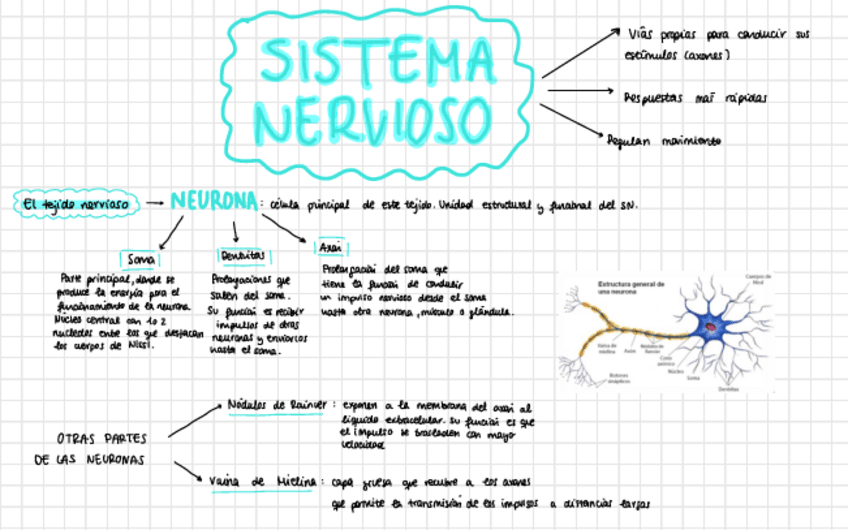 SISTEMA
NERVIOSO
Vías propias para conducir sus
estímulos (axones)
Respuestas más rápidas
Regulan movimiento
El tejido nervioso
NEURONA: célula principal de este tejido. Unidad estructural y funcional del SN.
Soma
Parte principal, donde se
produce la energía para el
funcionamiento de la neurona.
Núcleo central con 1 o 2
nucleolos entre los que destacan
los cuerpos de Nissl.
Dendritas
Prolongaciones que
salen del soma.
Su función es recibir
impulsos de otras
neuronas y enviarlos
hasta el soma.
Axón
Prolongación del soma que
tiene la función de conducir
un impulso nervioso desde el soma
hasta otra neurona, músculo o glándula.
Estructura general de
una neurona
Cuerpos de
Nissl
Vaina de
mielina
Axón
Nódulos de
Ranvier
Cono
axónico
Núcleo
Soma
Dendritas
Botones
sinápticos
OTRAS PARTES
DE LAS NEURONAS
Nódulos de Rainver: exponen a la membrana del axón al
líquido extracelular. Su función es que
el impulso se trasladen con mayor
velocidad
Vaina de Mielina: capa gruesa que recubre a los axones
que permite la transmisión de los impulsos a distancias largas